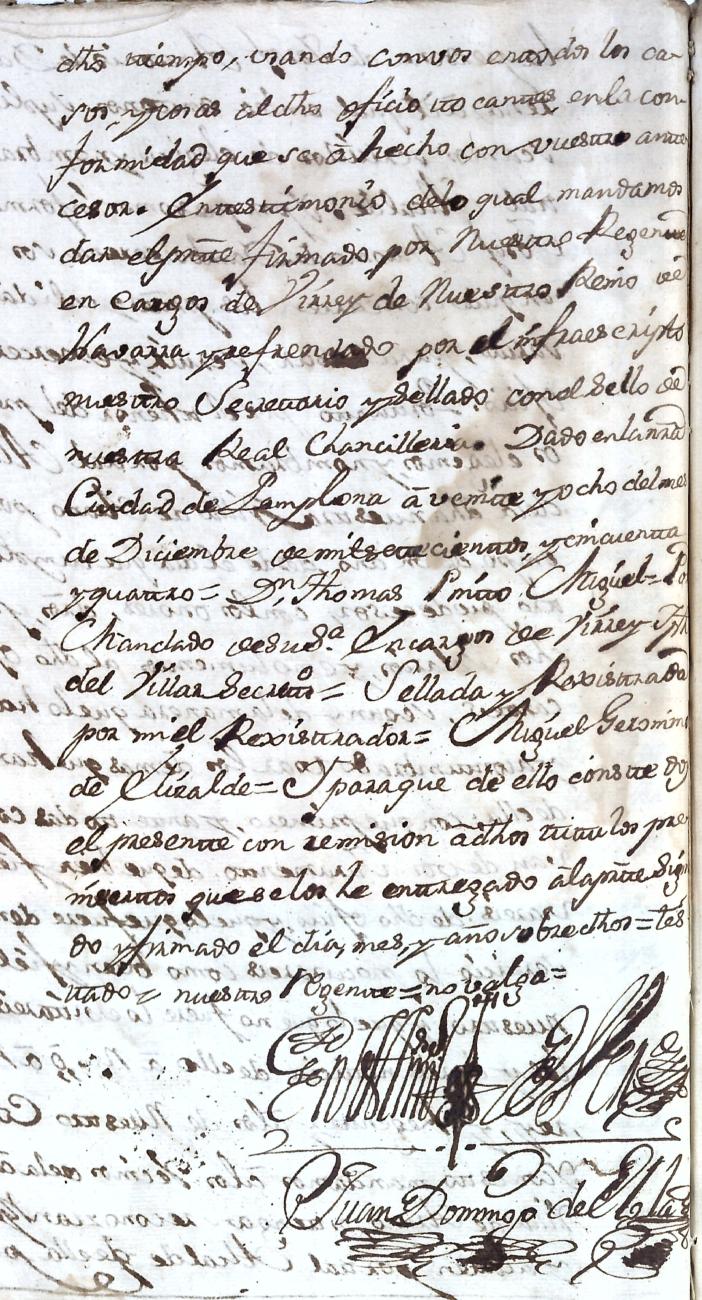 dho tiempo, usando con vos en todos los ca-
sos, y cosas al dho oficio tocantes en la con-
formidad que se â hecho con vuestro ante
cesor. En testimonio de lo qual mandamos
dar el prnte firmado por Nuestro Regente
en Cargos de Virrey de Nuestro Reino de
Navarra y refrendado por el infraescripto
nuestro Secretario y sellado con el sello de
nuestra Real Chancilleria. Dado en la nra
Ciudad de Pamplona â veinte y ocho del mes
de Diciembre de mil setecientos, y cinquenta
y quattro= Dn Thomas Pinto Miguel= Por
Mandado de su Sª. En cargos de Virrey Jph
del Villar Secretº= Sellada y Rexistrada
por mi el Rexistrador= Miguel Geronimo
de Elizalde= Y para que de ello conste doy
el presente con remision â dhos titulos pre
insertos que se los he entregado â la prnte sign
do y firmado el dia, mes, y año sobre dhos= tes
tado= nuestro Regente= no valga=
Juan Domingo de